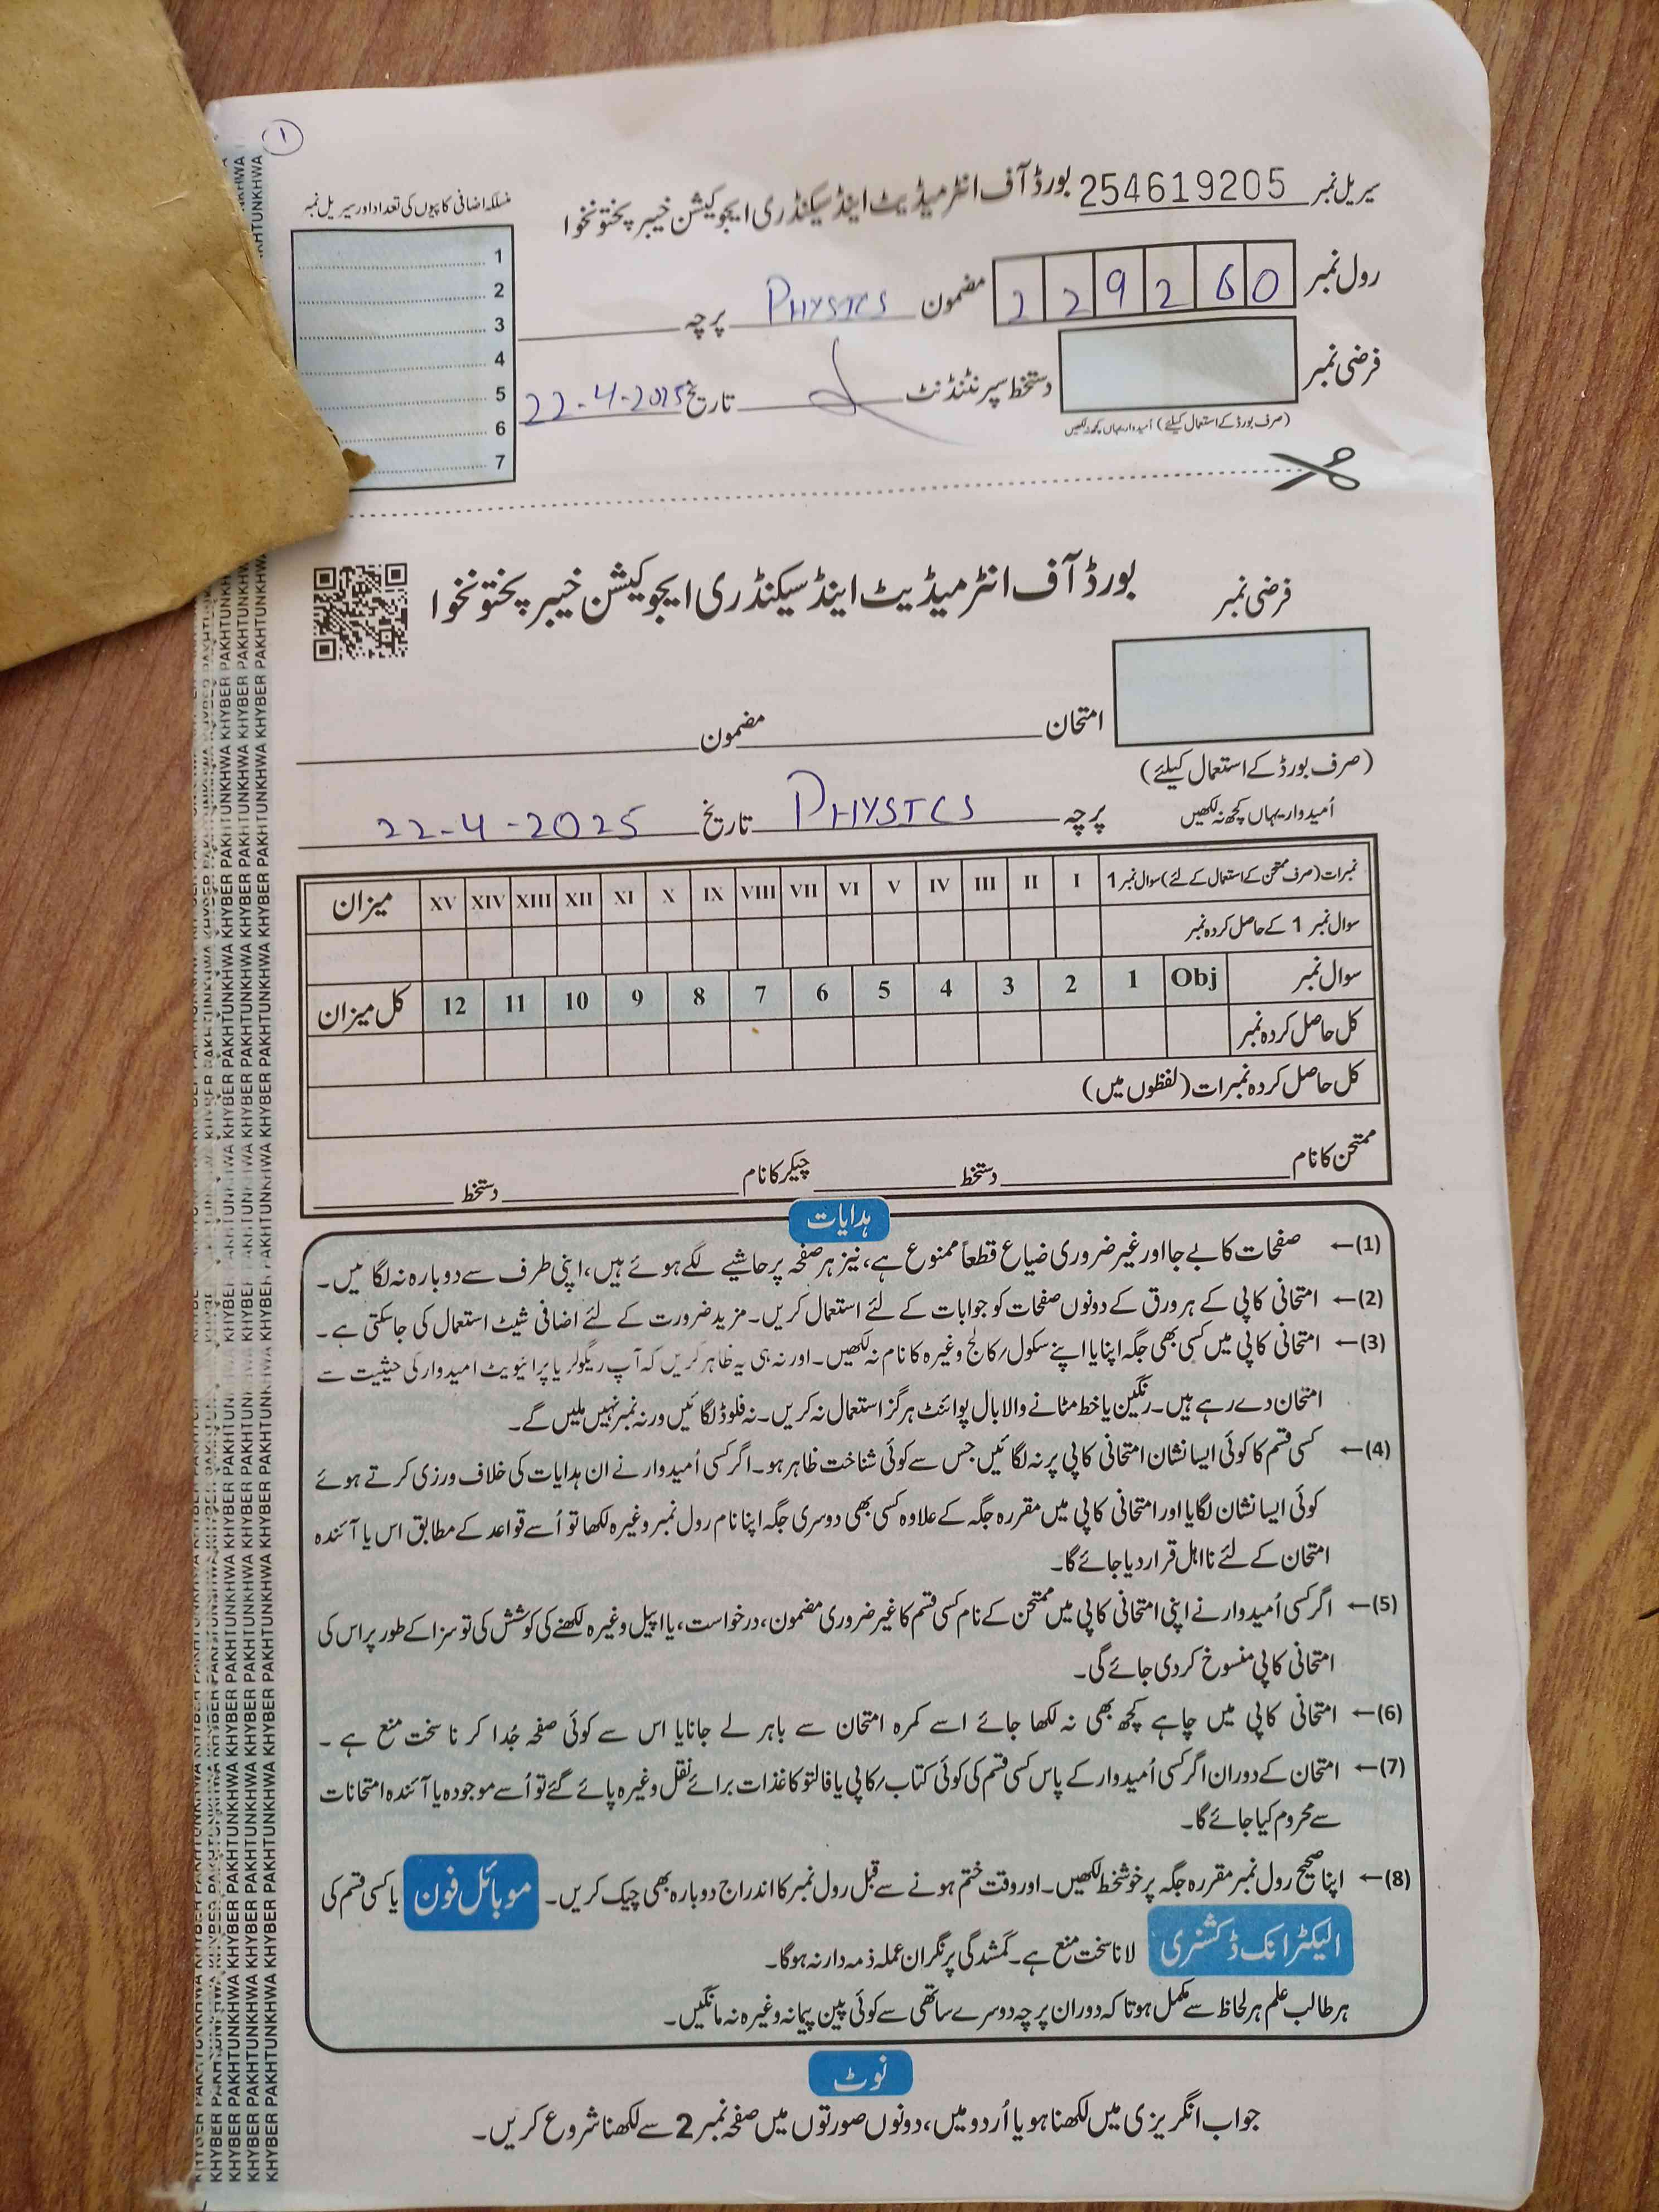 ۱
سیریل نمبر 254619205 بورڈ آف انٹرمیڈیٹ اینڈ سیکنڈری ایجوکیشن خیبر پختونخوا
منسلکہ اضافی کاپیوں کی تعداد اور سیریل نمبر
1
2
3
4
5
6
7
رول نمبر 229260 مضمون PHYSICS پرچہ
فرضی نمبر
دستخط سپرنٹنڈنٹ تاریخ 22-4-2025
(صرف بورڈ کے استعمال کیلئے) اُمیدوار یہاں کچھ نہ لکھیں
بورڈ آف انٹرمیڈیٹ اینڈ سیکنڈری ایجوکیشن خیبر پختونخوا
فرضی نمبر
امتحان مضمون
(صرف بورڈ کے استعمال کیلئے)
اُمیدوار یہاں کچھ نہ لکھیں
پرچہ PHYSICS تاریخ 22-4-2025
نمبرات (صرف ممتحن کے استعمال کے لئے) سوال نمبر 1 I II III IV V VI VII VIII IX X XI XII XIII XIV XV میزان
سوال نمبر 1 کے حاصل کردہ نمبر
سوال نمبر Obj 1 2 3 4 5 6 7 8 9 10 11 12 کل میزان
کل حاصل کردہ نمبر
کل حاصل کردہ نمبرات (لفظوں میں)
ممتحن کا نام دستخط چیکر کا نام دستخط
ہدایات
(1)← صفحات کا بے جا اور غیر ضروری ضیاع قطعاً ممنوع ہے، نیز ہر صفحہ پر حاشیے لگے ہوئے ہیں، اپنی طرف سے دوبارہ نہ لگائیں۔
(2)← امتحانی کاپی کے ہر ورق کے دونوں صفحات کو جوابات کے لئے استعمال کریں۔ مزید ضرورت کے لئے اضافی شیٹ استعمال کی جاسکتی ہے۔
(3)← امتحانی کاپی میں کسی بھی جگہ اپنا یا اپنے سکول/کالج وغیرہ کا نام نہ لکھیں۔ اور نہ ہی یہ ظاہر کریں کہ آپ ریگولر یا پرائیویٹ امیدوار کی حیثیت سے
امتحان دے رہے ہیں۔ رنگین یا خط مٹانے والا بال پوائنٹ ہرگز استعمال نہ کریں۔ نہ فلوڈ لگائیں ورنہ نمبر نہیں ملیں گے۔
(4)← کسی قسم کا کوئی ایسا نشان امتحانی کاپی پر نہ لگائیں جس سے کوئی شناخت ظاہر ہو۔ اگر کسی اُمیدوار نے ان ہدایات کی خلاف ورزی کرتے ہوئے
کوئی ایسا نشان لگایا اور امتحانی کاپی میں مقررہ جگہ کے علاوہ کسی بھی دوسری جگہ اپنا نام رول نمبر وغیرہ لکھا تو اُسے قواعد کے مطابق اس یا آئندہ
امتحان کے لئے نااہل قرار دیا جائے گا۔
(5)← اگر کسی اُمیدوار نے اپنی امتحانی کاپی میں ممتحن کے نام کسی قسم کا غیر ضروری مضمون، درخواست، یا اپیل وغیرہ لکھنے کی کوشش کی تو سزا کے طور پر اس کی
امتحانی کاپی منسوخ کر دی جائے گی۔
(6)← امتحانی کاپی میں چاہے کچھ بھی نہ لکھا جائے اسے کمرہ امتحان سے باہر لے جانا یا اس سے کوئی صفحہ جُدا کرنا سخت منع ہے۔
(7)← امتحان کے دوران اگر کسی اُمیدوار کے پاس کسی قسم کی کوئی کتاب/کاپی یا فالتو کاغذات برائے نقل وغیرہ پائے گئے تو اُسے موجودہ یا آئندہ امتحانات
سے محروم کیا جائے گا۔
(8)← اپنا صحیح رول نمبر مقررہ جگہ پر خوشخط لکھیں۔ اور وقت ختم ہونے سے قبل رول نمبر کا اندراج دوبارہ بھی چیک کریں۔ موبائل فون یا کسی قسم کی
الیکٹرانک ڈکشنری لانا سخت منع ہے۔ گمشدگی پر نگران عملہ ذمہ دار نہ ہوگا۔
ہر طالب علم ہر لحاظ سے مکمل ہو تاکہ دوران پرچہ دوسرے ساتھی سے کوئی پین پیمانہ وغیرہ نہ مانگیں۔
نوٹ
جواب انگریزی میں لکھنا ہو یا اُردو میں، دونوں صورتوں میں صفحہ نمبر 2 سے لکھنا شروع کریں۔
KHYBER PAKHTUNKHWA KHYBER PAKHTUNKHWA KHYBER PAKHTUNKHWA